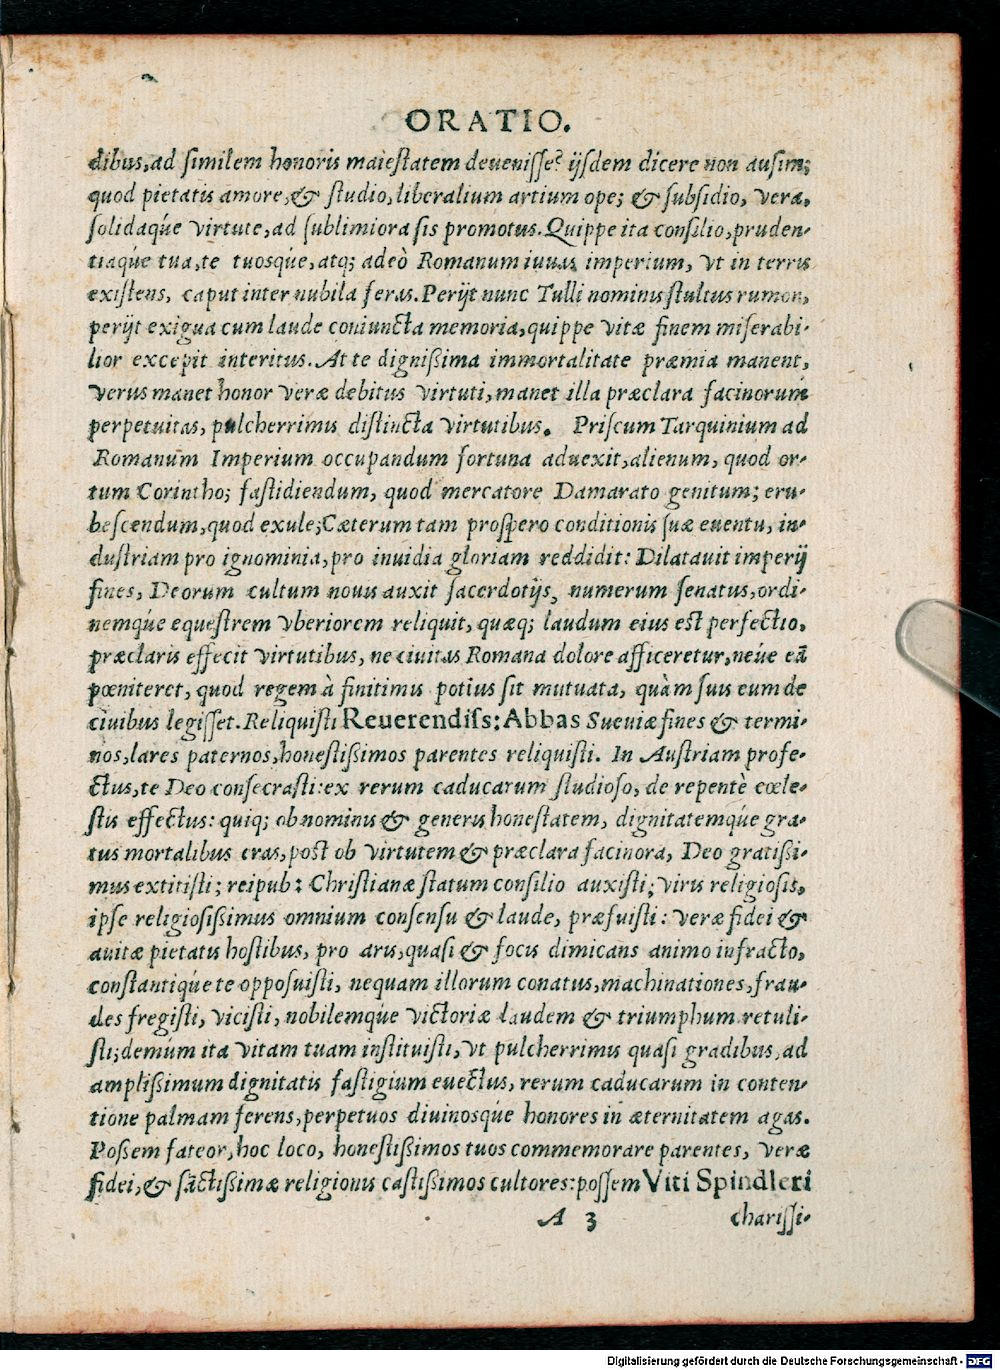 ORATIO.
dibus, ad similem honoris maiestatem deuenisse? ijsdem dicere non ausim;
quod pietatis amore, & studio, liberalium artium ope; & subsidio, vera,
solidaq́ue virtute, ad sublimiora sis promotus. Quippe ita consilio, pruden-
tiaq́ue tua, te tuosq́ue, atq; adeò Romanum iuuas imperium, vt in terris
existens, caput inter nubila feras. Perijt nunc Tulli nominis stultus rumor,
perijt exigua cum laude coniuncta memoria, quippe vitæ finem miserabi-
lior excepit interitus. At te dignißima immortalitate præmia manent,
verus manet honor veræ debitus virtuti, manet illa præclara facinorum
perpetuitas, pulcherrimis distincta virtutibus. Priscum Tarquinium ad
Romanum Imperium occupandum fortuna aduexit, alienum, quod or-
tum Corintho; fastidiendum, quod mercatore Damarato genitum; eru-
bescendum, quod exule; Cæterum tam prospero conditionis suæ euentu, in-
dustriam pro ignominia, pro inuidia gloriam reddidit: Dilatauit imperij
fines, Deorum cultum nouis auxit sacerdotijs, numerum senatus, ordi-
nemq́ue equestrem vberiorem reliquit, quæq; laudum eius est perfectio,
præclaris effecit virtutibus, ne ciuitas Romana dolore afficeretur, neúe eã
pœniteret, quod regem à finitimis potius sit mutuata, quàm suis eum de
ciuibus legisset. Reliquisti Reuerendiss: Abbas Sueuiæ fines & termi-
nos, lares paternos, honestißimos parentes reliquisti. In Austriam profe-
ctus, te Deo consecrasti: ex rerum caducarum studioso, de repentè cœle-
stis effectus: quiq; ob nominis & generis honestatem, dignitatemq́ue gra-
tus mortalibus eras, post ob virtutem & præclara facinora, Deo gratißi-
mus extitisti; reipub: Christianæ statum consilio auxisti; viris religiosis,
ipse religiosißimus omnium consensu & laude, præfuisti: veræ fidei &
auitæ pietatis hostibus, pro aris, quasi & focis dimicans animo infracto,
constantiq́ue te opposuisti, nequam illorum conatus, machinationes, frau-
des fregisti, vicisti, nobilemq́ue victoriæ laudem & triumphum retuli-
sti; demùm ita vitam tuam instituisti, vt pulcherrimis quasi gradibus, ad
amplißimum dignitatis fastigium euectus, rerum caducarum in conten-
tione palmam ferens, perpetuos diuinosq́ue honores in æternitatem agas.
Poßem fateor, hoc loco, honestißimos tuos commemorare parentes, veræ
fidei, & sãctißimæ religionis castißimos cultores: possem Viti Spindleri
A 3 charissi-
Digitalisierung gefördert durch die Deutsche Forschungsgemeinschaft - DFG